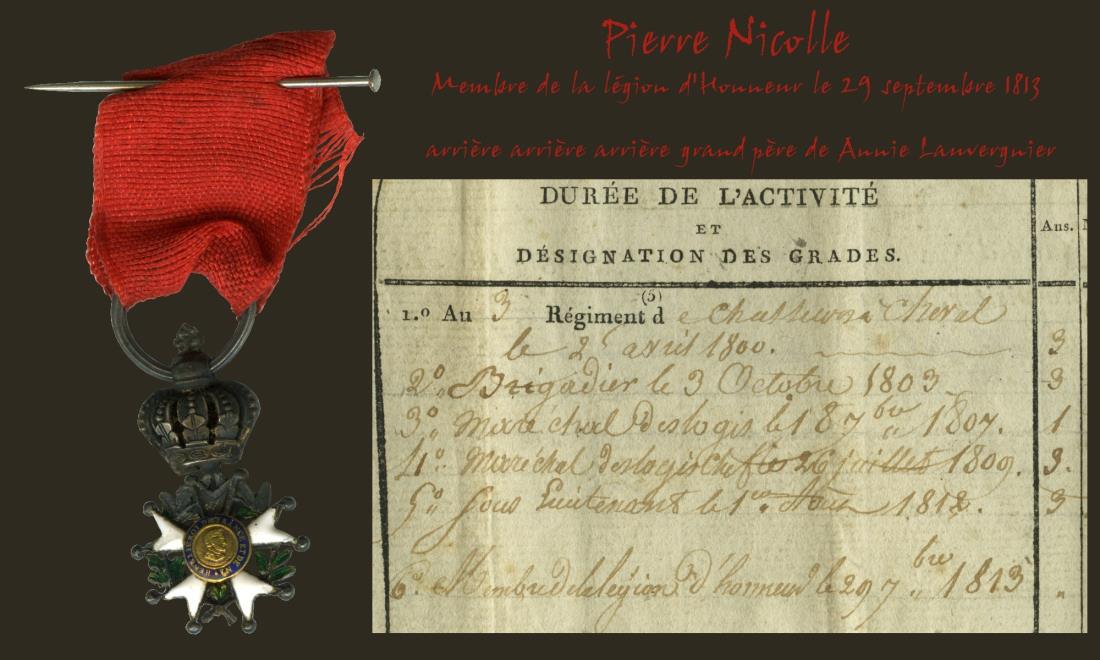 Pierre Nicolle
Membre de la légion d'Honneur le 29 septembre 1813
arrière arrière arrière grand père de Annie Lauvergnier
DURÉE DE L'ACTIVITÉ
ET
DÉSIGNATION DES GRADES.
Ans.
1.º Au 3 Régiment (5) de chasseurs a cheval
le 2 avril 1800. 3
2º Brigadier le 3 Octobre 1803 3
3º Maréchal Deslogis le 18 7bre 1807. 1
4º Maréchal deslogis chef le 26 juillet 1809. 3.
5º Sous Lieutenant le 1er Aout 1812. 3
6º Membre de la légion d'honneur le 29 7bre 1813 "